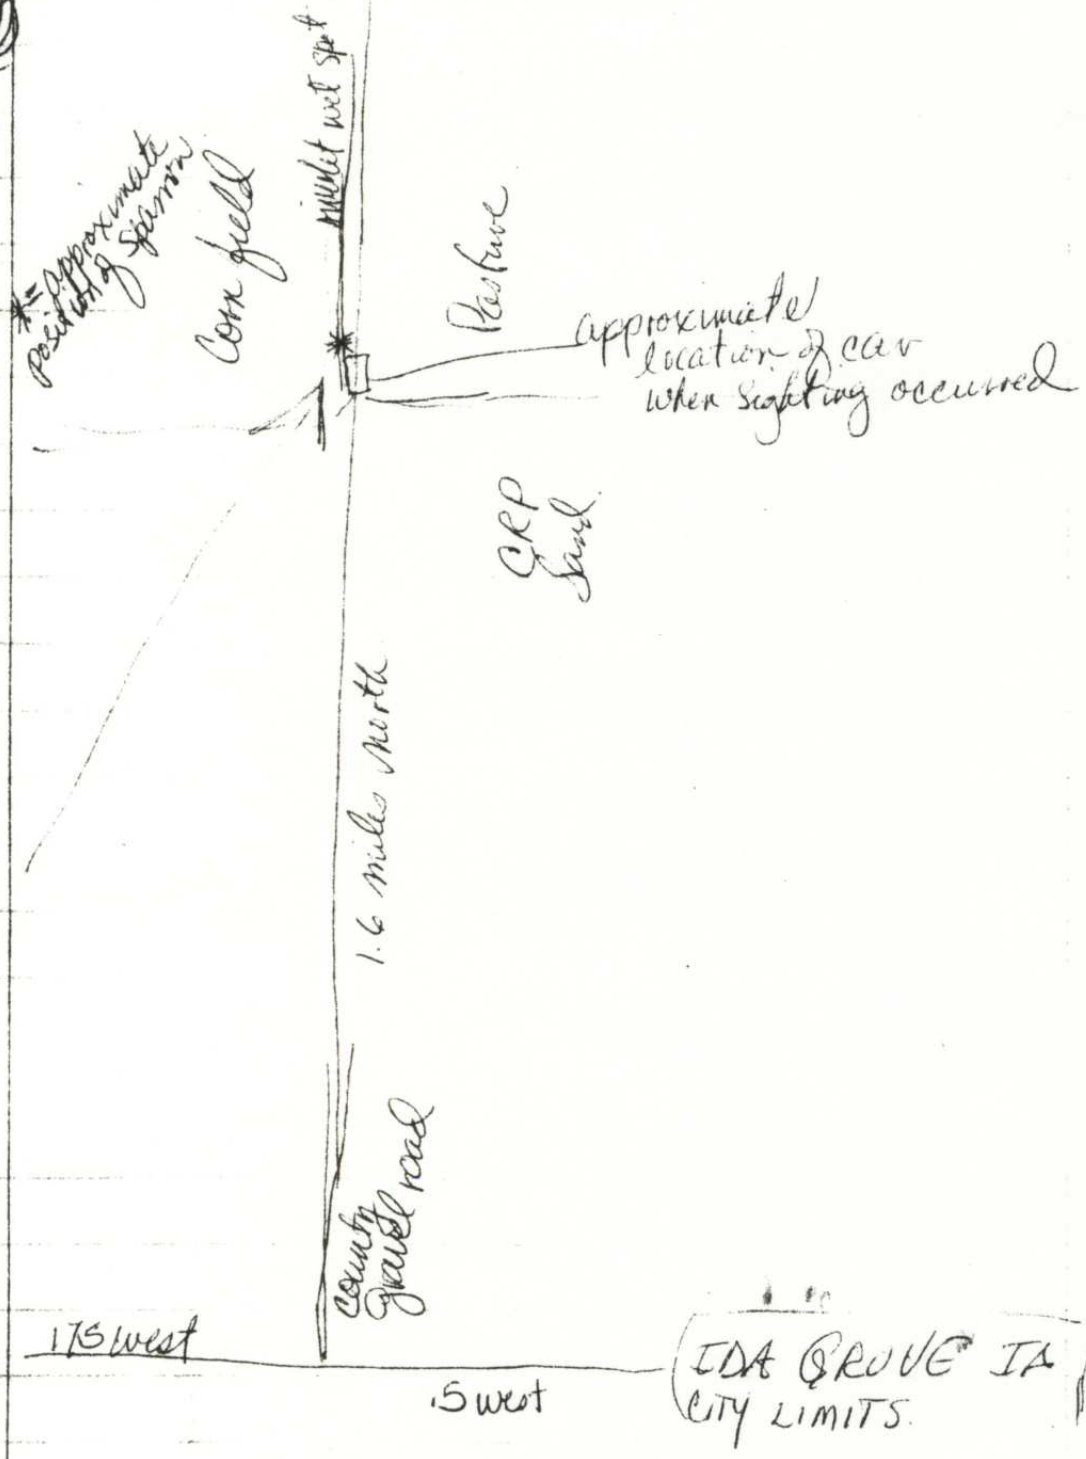 * = approximate
position of sparrow
Corn field
wet spot
Pasture
approximate
location of car
when sighting occurred
CRP
land
1.6 miles north
county
gravel road
175 west
.5 west
IDA GROVE IA
CITY LIMITS.